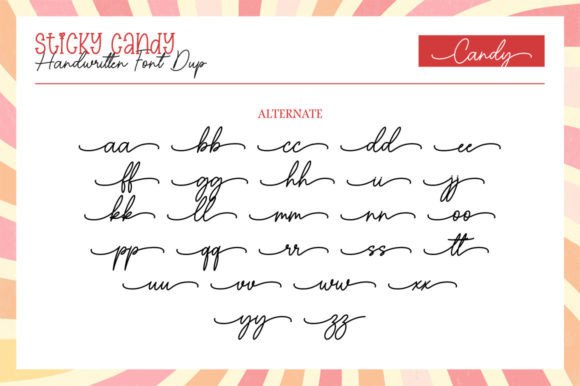 Sticky Candy
Handwritten Font Dup
Candy
ALTERNATE
aa bb cc dd ee
ff gg hh ii jj
kk ll mm nn oo
pp qq rr ss tt
uu vv ww xx
yy zz